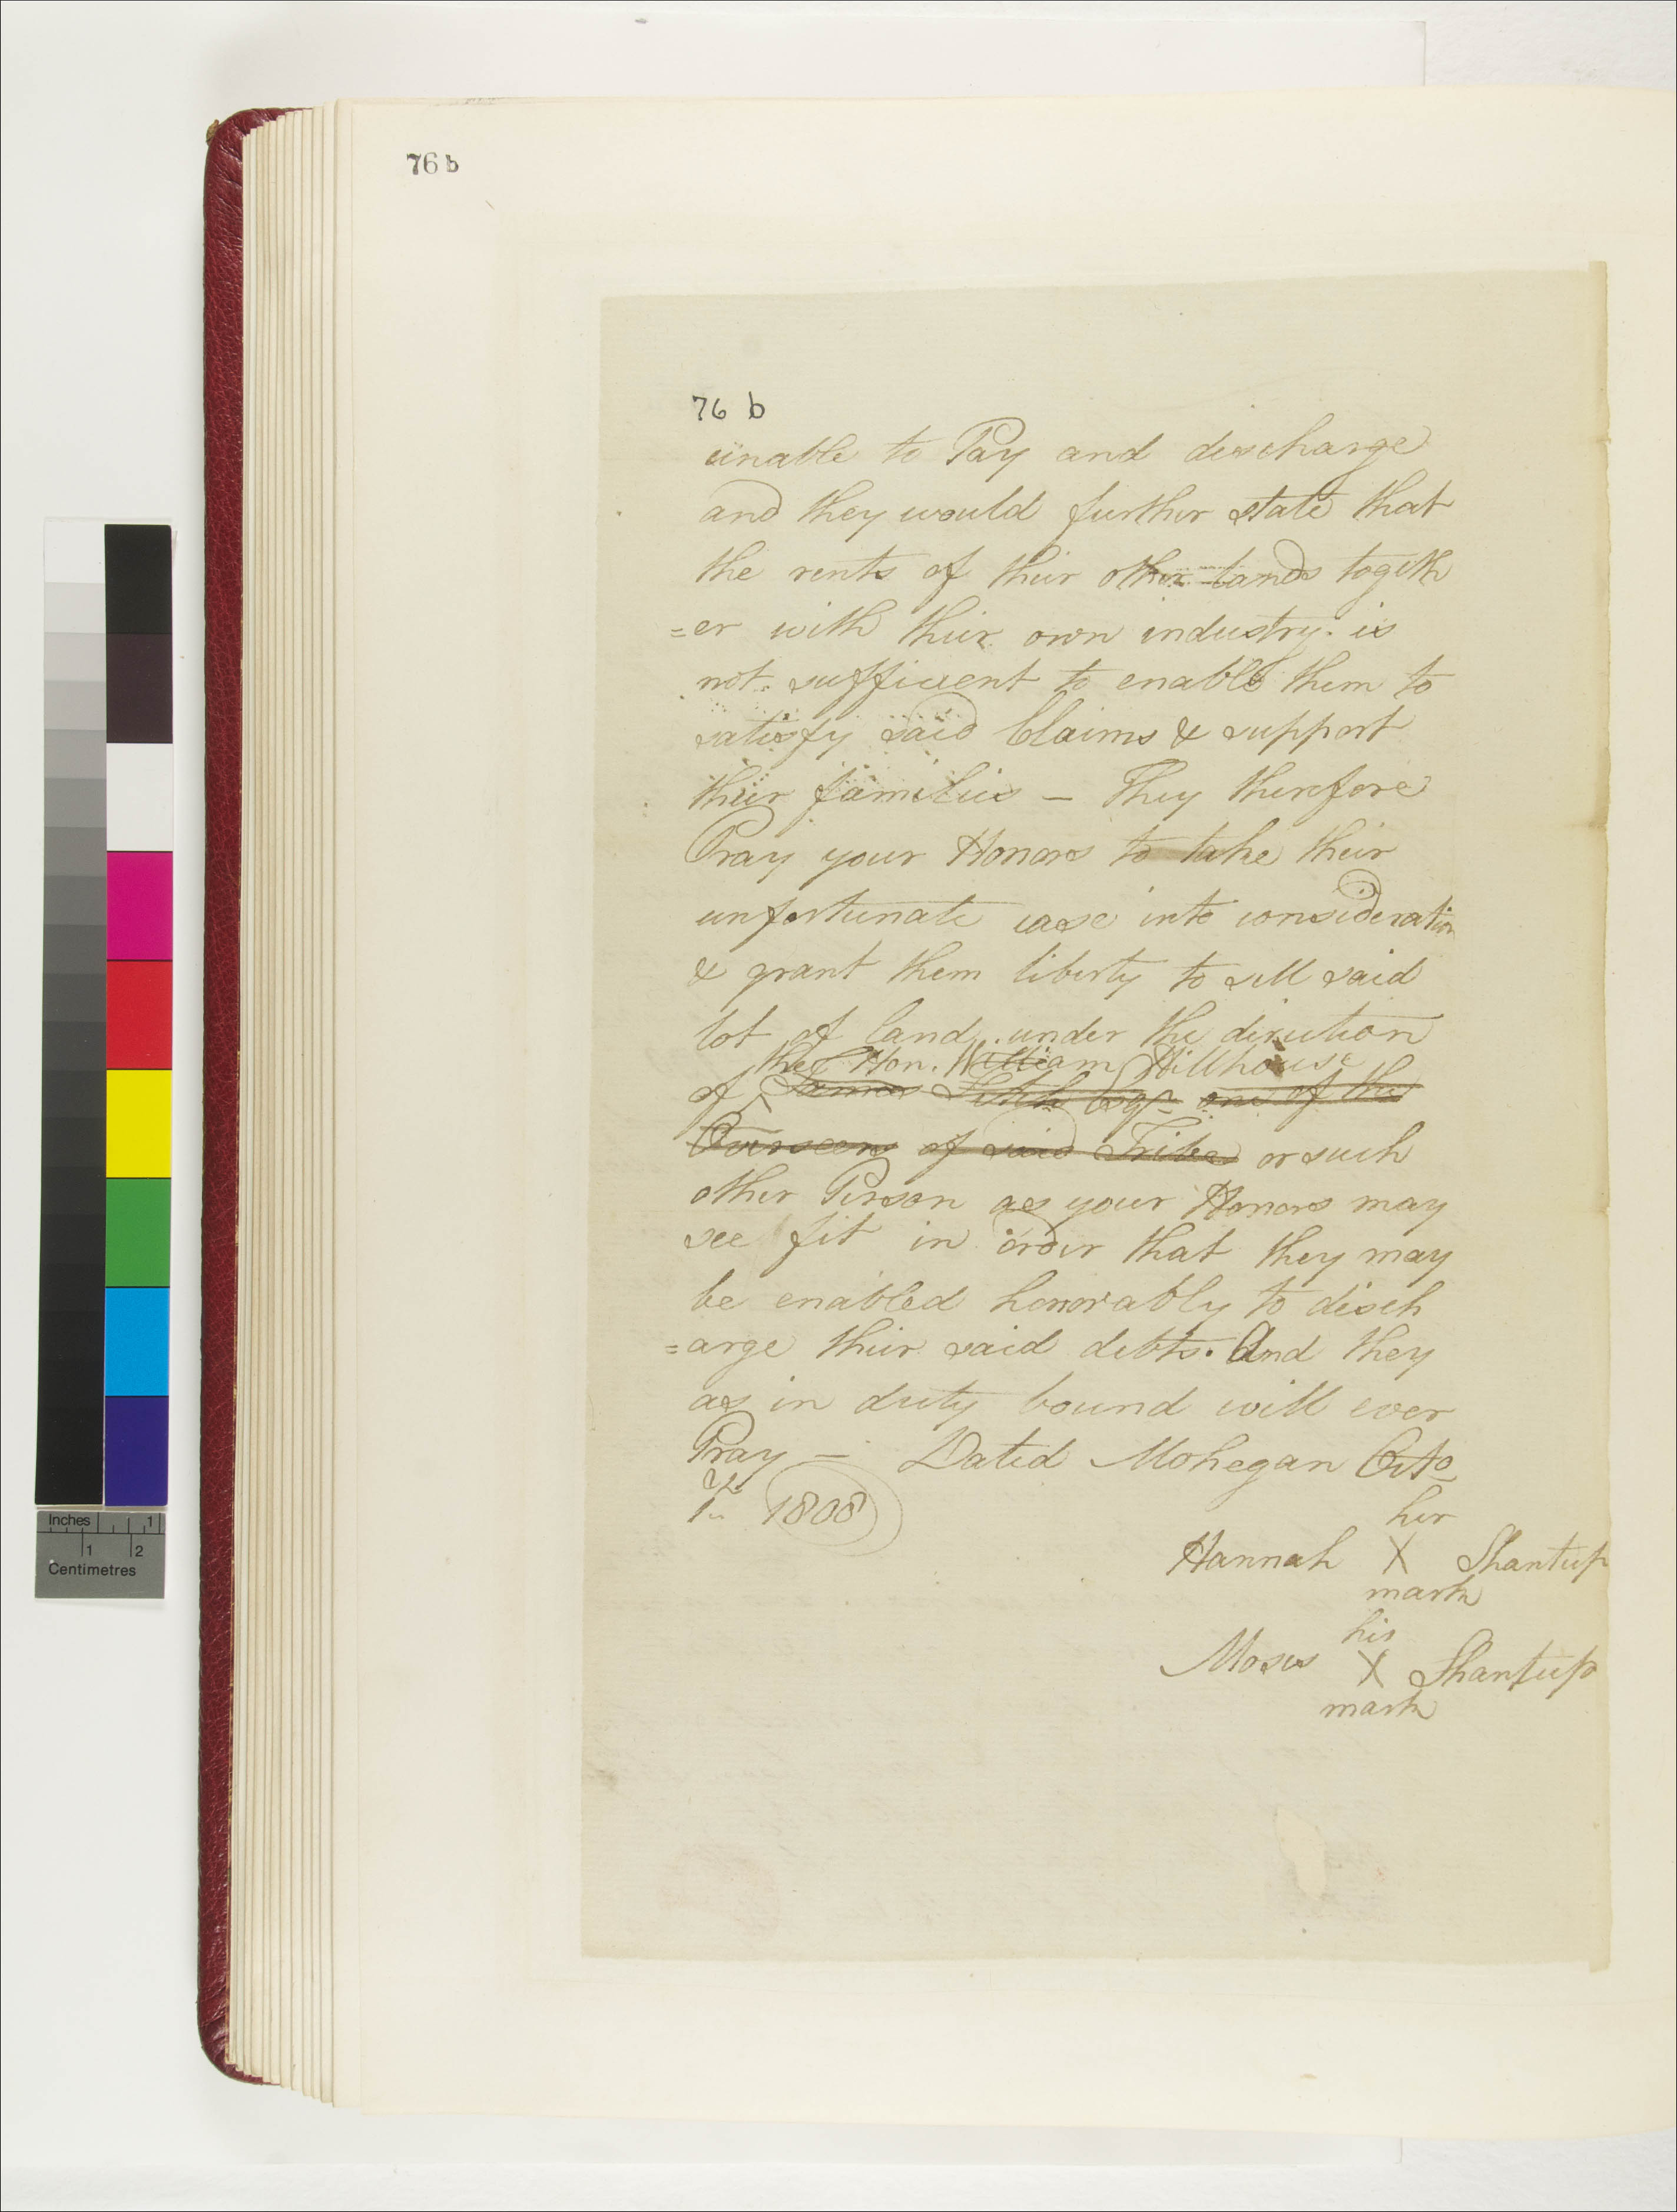 76 b
76 b
unable to Pay and discharge
and they would further state that
the rents of their other lands togeth
=er with their own industry is
not sufficient to enable them to
satisfy said Claims & support
their families — They therefore
Pray your Honors to take their
unfortunate case into consideration
& grant them liberty to sell said
lot of land under the direction
the Hon. William Hillhouse
of ^ James Fitch Esqr one of the
Overseers of said Tribe or such
other Person as your Honors may
see fit in order that they may
be enabled honorably to disch
=arge their said debts. And they
as in duty bound will ever
Pray — Dated Mohegan Octo
1st 1808
her
Hannah X Shantup
mark
his
Moses X Shantup
mark
Inches 1
1 2
Centimetres